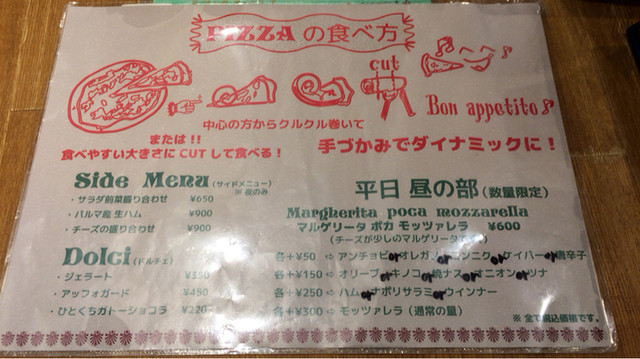 PIZZAの食べ方
cut
Bon appetito♪
中心の方からクルクル巻いて
または!!
食べやすい大きさにCUTして食べる!
手づかみでダイナミックに!
Side Menu(サイドメニュー)
※夜のみ
・サラダ前菜盛り合わせ ¥650
・パルマ産 生ハム ¥900
・チーズの盛り合わせ ¥900
Dolci(ドルチェ)
・ジェラート ¥350
・アッフォガード ¥450
・ひとくちガトーショコラ ¥220
平日 昼の部(数量限定)
Margherita poca mozzarella
マルゲリータ ポカ モッツァレラ ¥600
(チーズが少しのマルゲリータです)
各+¥50 ⇨ アンチョビorオレガノorニンニクorケイパーor唐辛子
各+¥150 ⇨ オリーブorキノコor焼ナスorオニオンorツナ
各+¥250 ⇨ ハムorナポリサラミorウインナー
各+¥300 ⇨ モッツァレラ(通常の量)
※ 全て税込価格です。